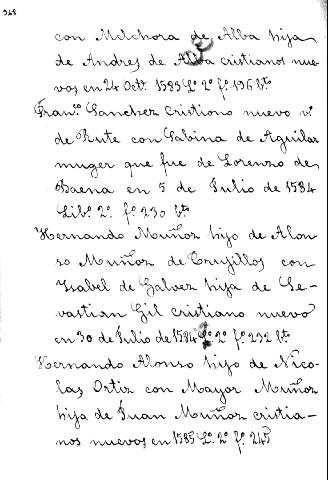 948
con Melchora de Alba hija
de Andres de Alba cristianos nue-
vos en 24 Octe. 1583 Lo. 2o fo. 196 bto
Franco. Sanchez cristiano nuevo vo.
de Rute con Sabina de Aguilar
muger que fue de Lorenzo de
Baena en 5 de Julio de 1584
Libo. 2o. fo. 230 bto
Hernando Muñoz hijo de Alon-
so Muñoz de Trujillos con
Isabel de Galvez hija de Se-
vastian Gil cristiano nuevo
en 30 de Julio de 1584 Lo. 2o fo. 232 bto
Hernando Alonso hijo de Nico-
las Ortiz con Mayor Muñoz
hija de Juan Muñoz cristia-
nos nuevos en 1585 Lo. 2o fo. 245